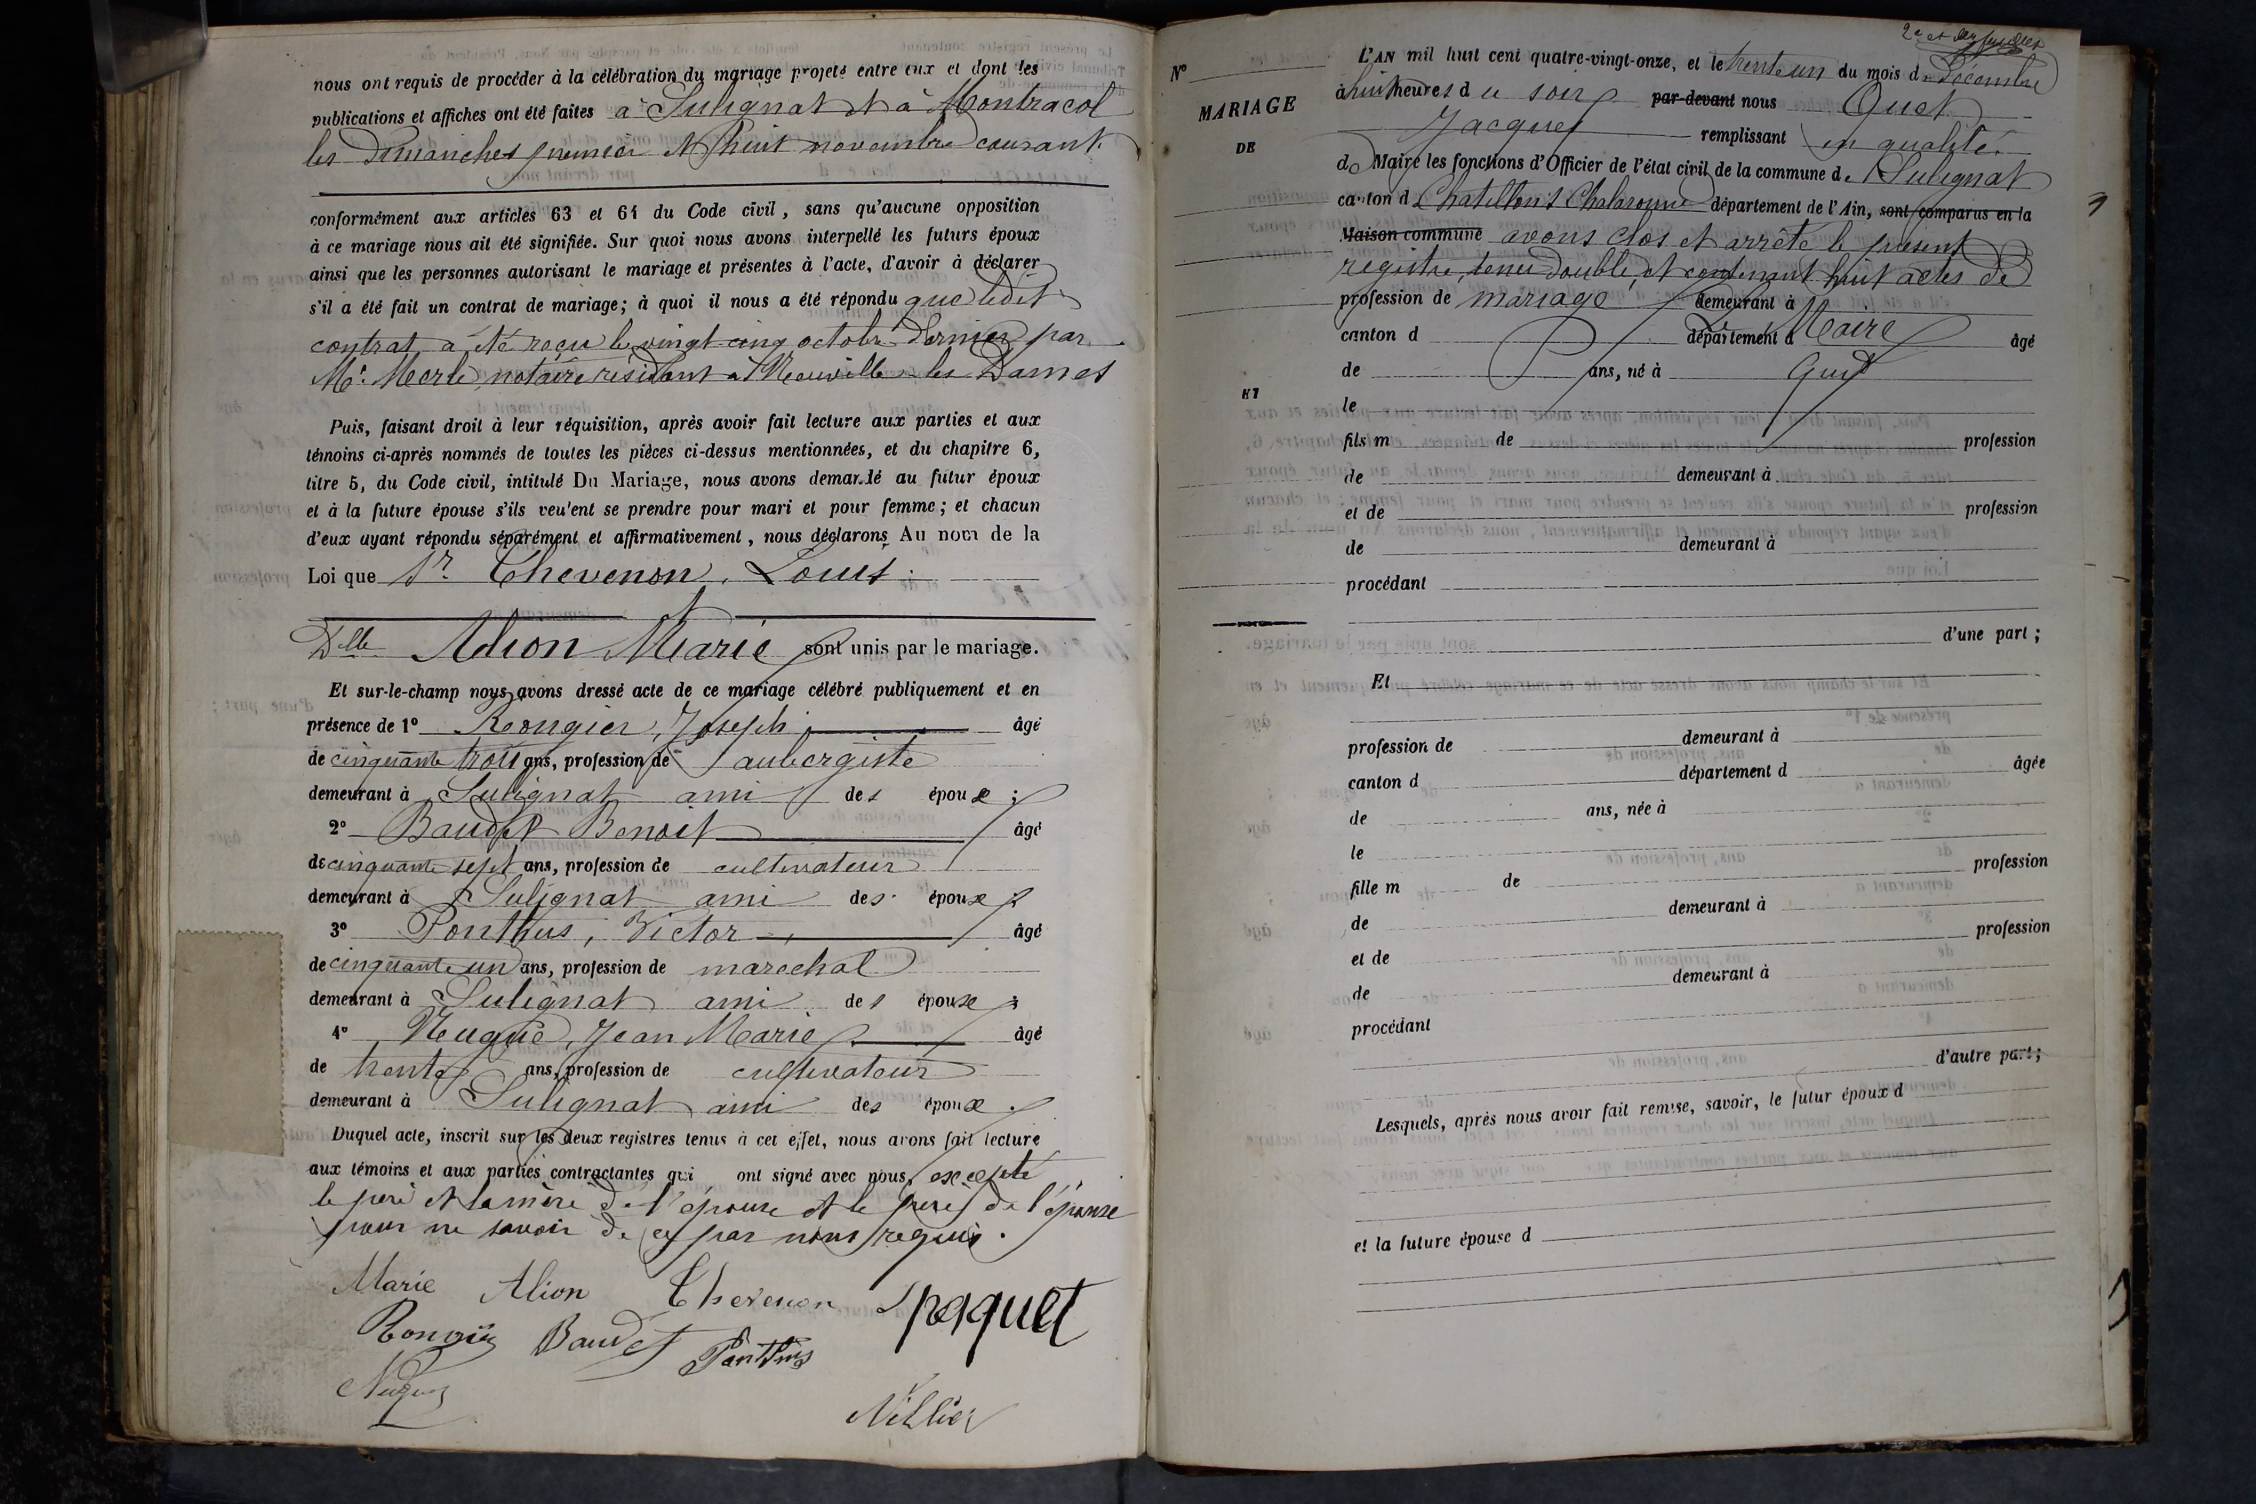 nous ont requis de procéder à la célébration du mariage projeté entre eux et dont les
publications et affiches ont été faites à Sulignat et à Montracol
les dimanches premier et huit novembre courant.
conformément aux articles 63 et 64 du Code civil, sans qu'aucune opposition
à ce mariage nous ait été signifiée. Sur quoi nous avons interpellé les futurs époux
ainsi que les personnes autorisant le mariage et présentes à l'acte, d'avoir à déclarer
s'il a été fait un contrat de mariage; à quoi il nous a été répondu que ledit
contrat a été reçu le vingt cinq octobre dernier par
Me. Merle notaire résidant à Neuville les Dames
Puis, faisant droit à leur réquisition, après avoir fait lecture aux parties et aux
témoins ci-après nommés de toutes les pièces ci-dessus mentionnées, et du chapitre 6,
titre 5, du Code civil, intitulé Du Mariage, nous avons demandé au futur époux
et à la future épouse s'ils veulent se prendre pour mari et pour femme; et chacun
d'eux ayant répondu séparément et affirmativement, nous déclarons Au nom de la
Loi que Sr. Chevenon, Louis.
et
Delle Alion Marie sont unis par le mariage.
Et sur-le-champ nous avons dressé acte de ce mariage célébré publiquement et en
présence de 1° Rongier, Joseph âgé
de cinquante trois ans, profession de aubergiste
demeurant à Sulignat ami des époux;
2° Baudet Benoit âgé
de cinquante sept ans, profession de cultivateur
demeurant à Sulignat ami des époux;
3° Ponthus, Victor âgé
de cinquante un ans, profession de marechal
demeurant à Sulignat ami des époux;
4° Nugue, Jean Marie âgé
de trente ans, profession de cultivateur
demeurant à Sulignat ami des époux.
Duquel acte, inscrit sur les deux registres tenus à cet effet, nous avons fait lecture
aux témoins et aux parties contractantes qui ont signé avec nous, excepté
le père et la mère de l'épouse et le père de l'épouse
pour ne savoir de ce par nous requis.
Marie Alion Chevenon Paquet
Rongier Baudet Ponthus
Nugue
Nillier
2e et dernier
N°
MARIAGE
DE
ET
L'AN mil huit cent quatre-vingt-onze, et le trente un du mois de Décembre
à huit heures du soir par-devant nous Quet
Jacques remplissant en qualité
de Maire les fonctions d'Officier de l'état civil de la commune de Sulignat
canton de Chatillon s Chalaronne département de l'Ain, sont comparus en la
Maison commune avons clos et arrêté le présent
registre, tenu double, et contenant huit actes de
profession de mariage demeurant à
canton d département d Maire âgé
de ans, né à Quet
le
fils m de profession
de demeurant à
et de profession
de demeurant à
procédant
d'une part;
Et
profession de demeurant à
canton d département d âgée
de ans, née à
le
fille m de profession
de demeurant à
et de profession
de demeurant à
procédant
d'autre part;
Lesquels, après nous avoir fait remise, savoir, le futur époux d
et la future épouse d